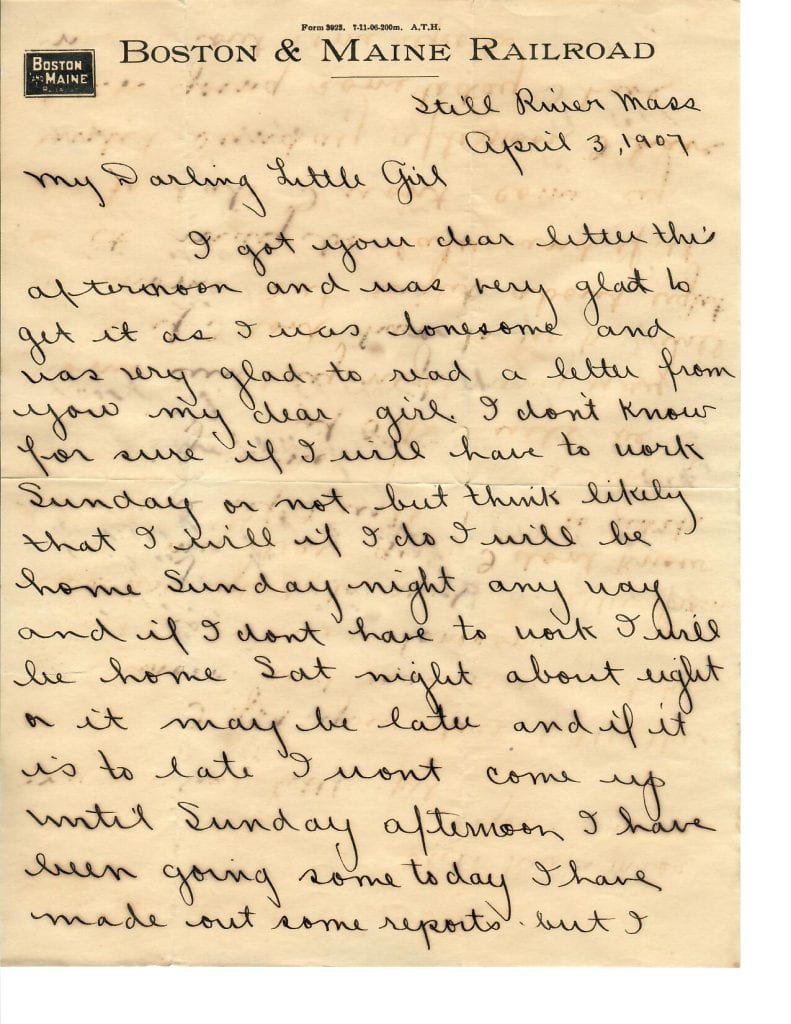 Form 3923. 7-11-06-200m. A.T.H.
BOSTON & MAINE RAILROAD
BOSTON
AND MAINE
Still River Mass
April 3, 1907
My Darling Little Girl
I got your dear letter this
afternoon and was very glad to
get it as I was lonesome and
was very glad to read a letter from
you my dear girl. I don't know
for sure if I will have to work
Sunday or not but think likely
that I will if I do I will be
home Sunday night any way
and if I dont have to work I will
be home Sat night about eight
or it may be later and if it
is to late I wont come up
until Sunday afternoon I have
been going some today I have
made out some reports but I